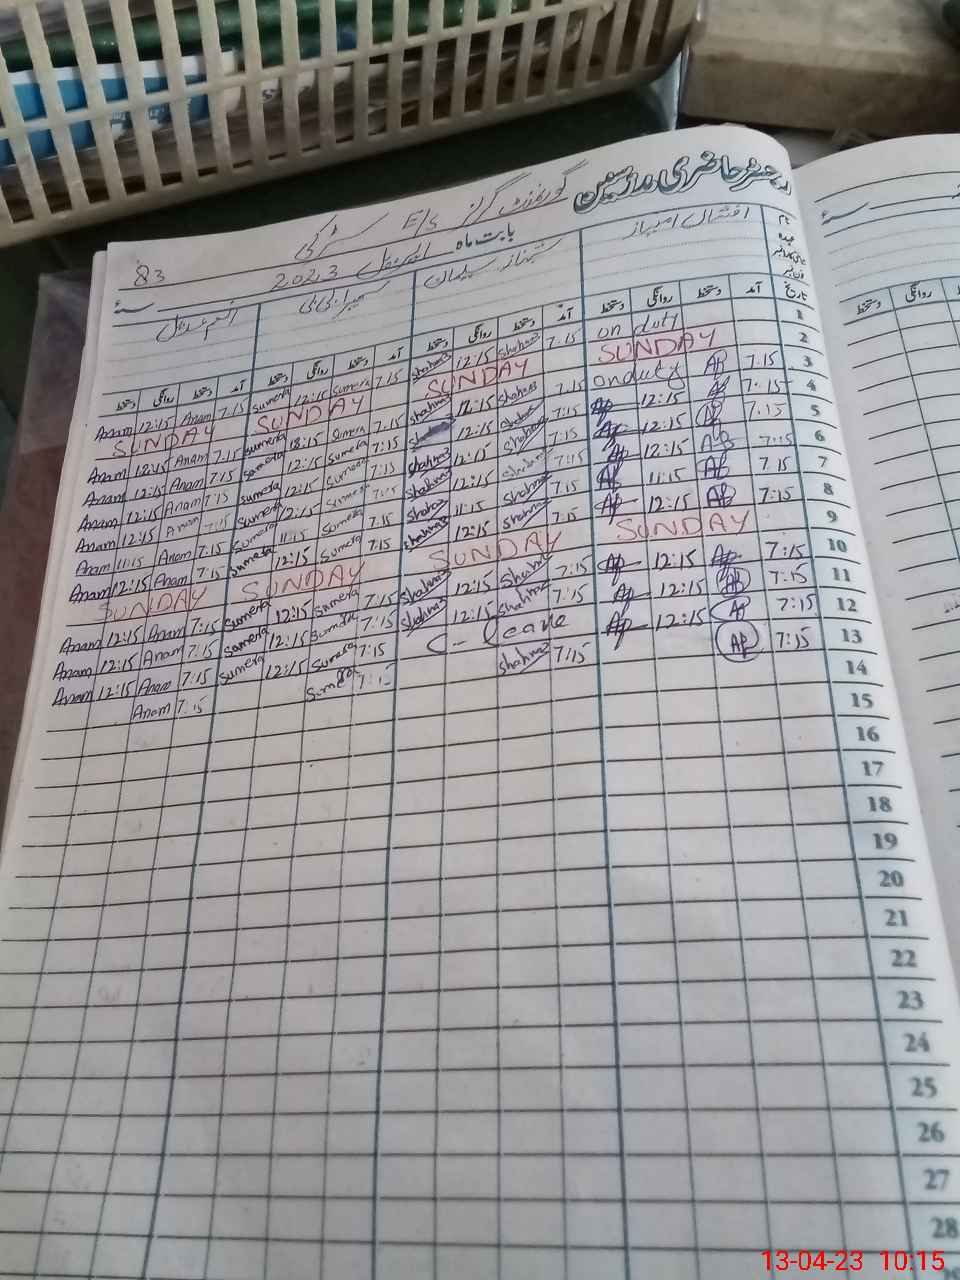 رجسٹر حاضری مدرسین
گورنمنٹ گرلز E/S
بابت ماہ اپریل 2023
83
دستخط روانگی دستخط آمد دستخط روانگی دستخط آمد دستخط روانگی دستخط آمد دستخط روانگی دستخط آمد تاریخ
Anam 12:15 Anam 7:15 Sumera 12:15 Sumera 7:15 Shahnaz 12:15 Shahnaz 7:15 on duty 1
SUNDAY SUNDAY SUNDAY SUNDAY 2
Anam 12:15 Anam 7:15 Sumera 12:15 Sumera 7:15 Shahnaz 12:15 Shahnaz 7:15 on duty AP 7:15 3
Anam 12:15 Anam 7:15 Sumera 12:15 Sumera 7:15 12:15 Shahnaz 7:15 AP 12:15 AP 7:15 4
Anam 12:15 Anam 7:15 Sumera 12:15 Sumera 7:15 Shahnaz 12:15 Shahnaz 7:15 AP 12:15 AP 7:15 5
Anam 12:15 Anam 7:15 Sumera 12:15 Sumera 7:15 Shahnaz 12:15 Shahnaz 7:15 AP 12:15 AP 7:15 6
Anam 11:15 Anam 7:15 Sumera 11:15 Sumera 7:15 Shahnaz 11:15 Shahnaz 7:15 AP 11:15 AP 7:15 7
Anam 12:15 Anam 7:15 Sumera 12:15 Sumera 7:15 Shahnaz 12:15 Shahnaz 7:15 AP 12:15 AP 7:15 8
SUNDAY SUNDAY SUNDAY SUNDAY 9
Anam 12:15 Anam 7:15 Sumera 12:15 Sumera 7:15 Shahnaz 12:15 Shahnaz 7:15 AP 12:15 AP 7:15 10
Anam 12:15 Anam 7:15 Sumera 12:15 Sumera 7:15 Shahnaz 12:15 Shahnaz 7:15 AP 12:15 AP 7:15 11
Anam 12:15 Anam 7:15 Sumera 12:15 Sumera 7:15 C-Leave AP 12:15 AP 7:15 12
Anam 7:15 Sumera 7:15 Shahnaz 7:15 AP 7:15 13
14
15
16
17
18
19
20
21
22
23
24
25
26
27
28
دستخط روانگی
13-04-23 10:15